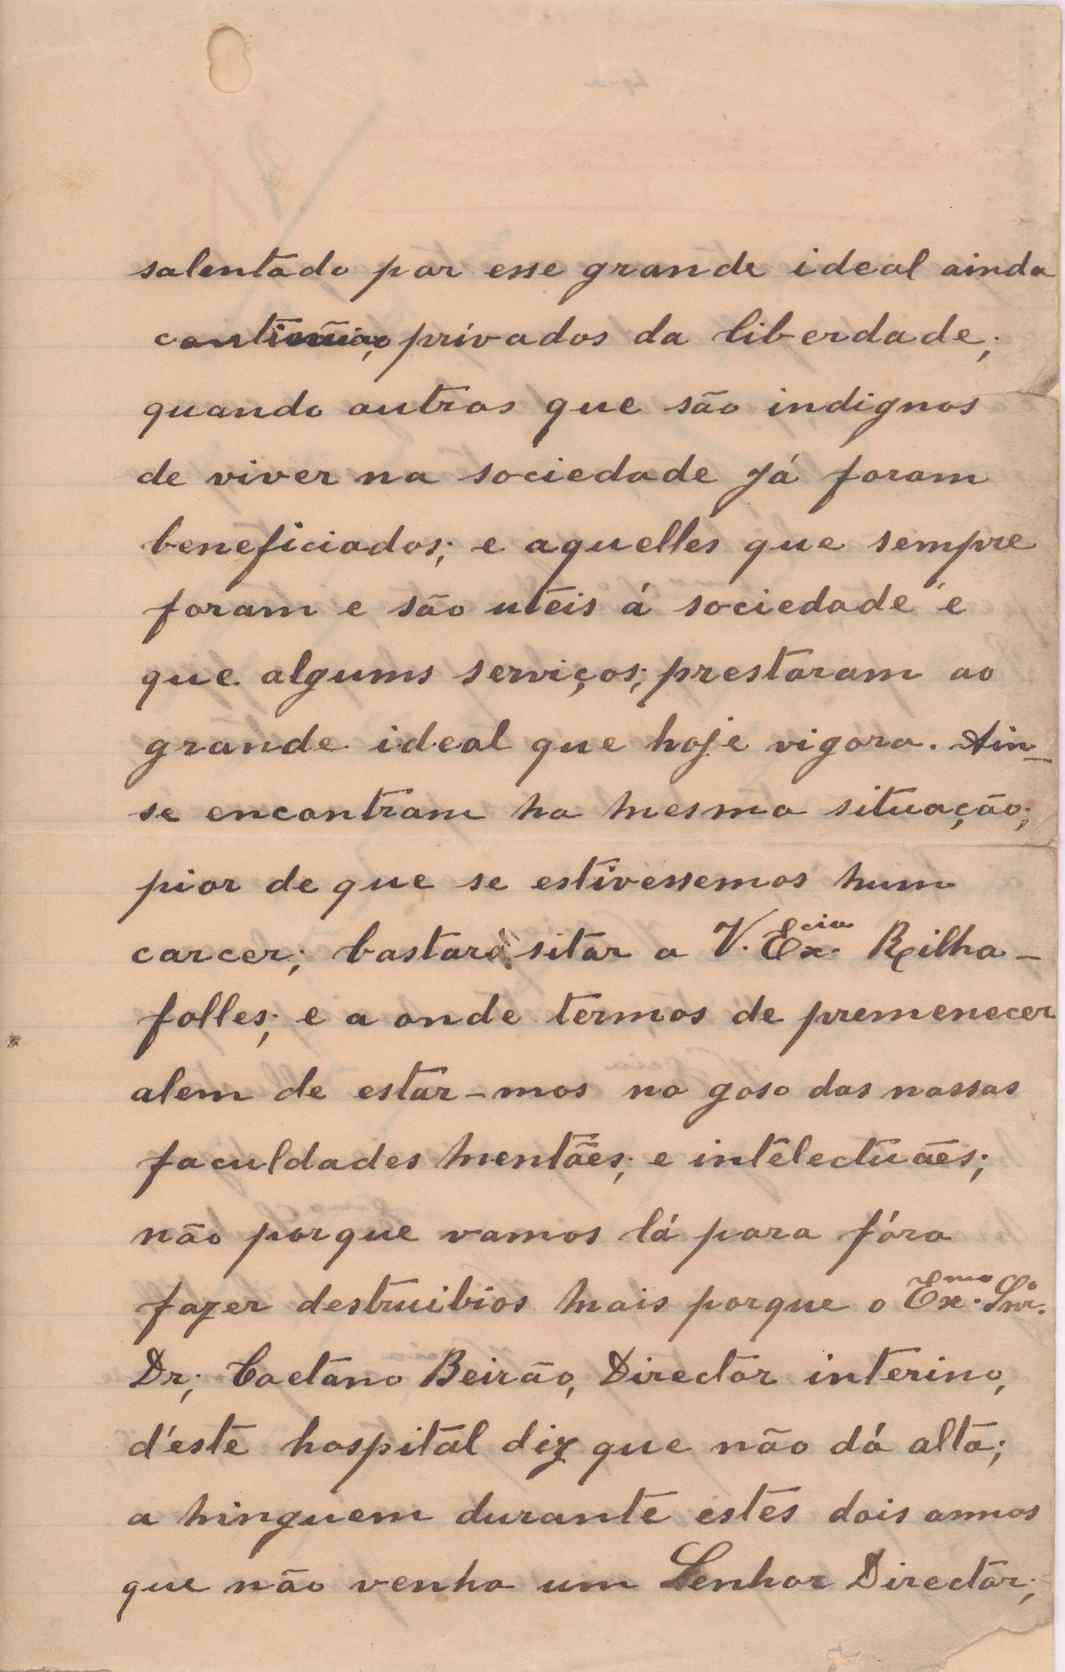 salentado por esse grande ideal ainda
continúão, privados da liberdade;
quando outros que são indignos
de viver na sociedade já foram
beneficiados; e aquelles que sempre
foram e são utéis á sociedade e
que algums serviços; prestaram ao
grande ideal que hoje vigora. Ain_
se encontram na mesma situação;
pior de que se estivessemos num
carcer; bastará sitar a V. Ex.cia Rilha_
folles; e a onde termos de premenecer
alem de estar_mos no goso das nossas
faculdades mentães; e intélectuães;
não porque vamos lá para fóra
fazer destruibios mais porque o Ex.mo Snr.
Dr; Caetano Beirão, Director interino,
d'este hospital diz que não dá alta;
a ninguem durante estes dois annos
que não venha um Senhor Director;